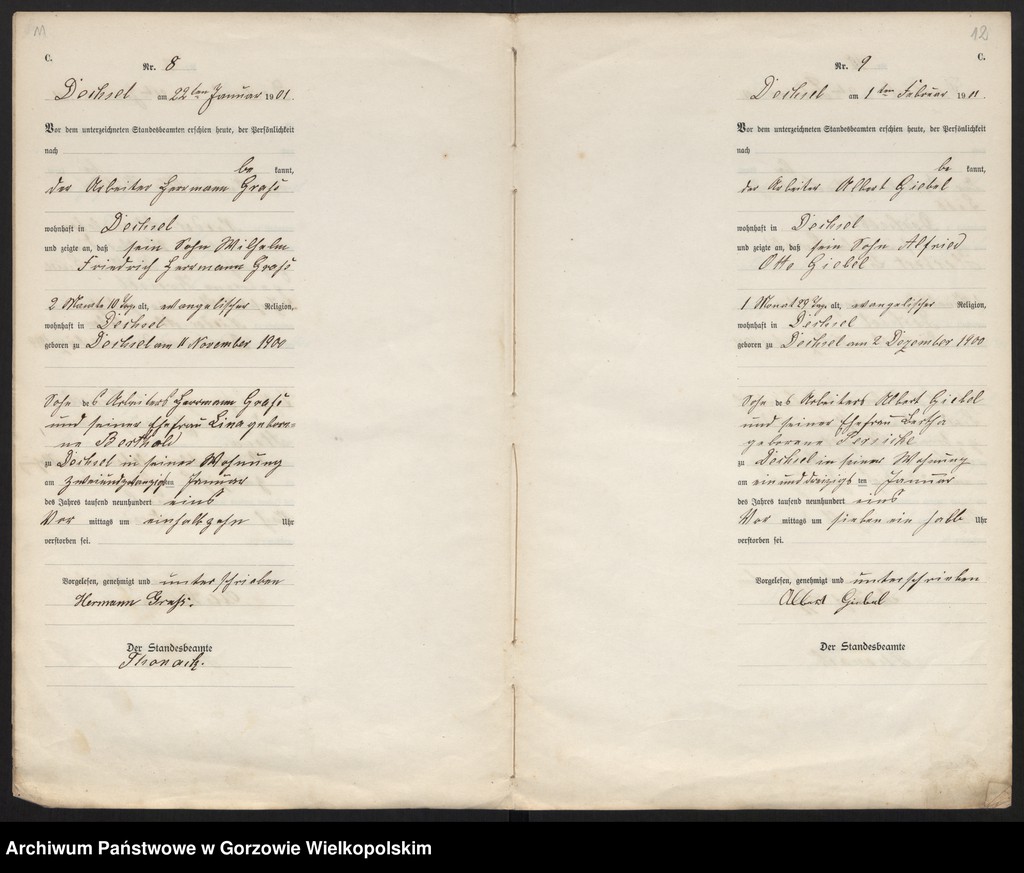 M
C.
Nr. 8
Dechsel am 22ten Januar 1901.
Vor dem unterzeichneten Standesbeamten erschien heute, der Persönlichkeit
nach
be kannt,
der Arbeiter Herrmann Graß
wohnhaft in Dechsel
und zeigte an, daß sein Sohn Wilhelm
Friedrich Herrmann Graß
2 Monate 10 Tage alt, evangelischer Religion,
wohnhaft in Dechsel
geboren zu Dechsel am 11 November 1900
Sohn des Arbeiters Herrmann Graß
und seiner Ehefrau Lina gebore=
ne Berthold
zu Dechsel in seiner Wohnung
am zweiundzwanzigsten Januar
des Jahres tausend neunhundert eins
Vor mittags um einhalbzehn Uhr
verstorben sei.
Vorgelesen, genehmigt und unterschrieben
Hermann Graß.
Der Standesbeamte
12
C.
Nr. 9
Dechsel am 1ten Februar 1901.
Vor dem unterzeichneten Standesbeamten erschien heute, der Persönlichkeit
nach
be kannt,
der Arbeiter Albert Giebel
wohnhaft in Dechsel
und zeigte an, daß sein Sohn Alfried
Otto Giebel
1 Monat 29 Tage alt, evangelischer Religion,
wohnhaft in Dechsel
geboren zu Dechsel am 2 Dezember 1900
Sohn des Arbeiters Albert Giebel
und seiner Ehefrau Bertha
geborene
zu Dechsel in seiner Wohnung
am einunddreizigsten Januar
des Jahres tausend neunhundert eins
Vor mittags um sieben ein halb Uhr
verstorben sei.
Vorgelesen, genehmigt und unterschrieben
Albert Giebel
Der Standesbeamte
Archiwum Państwowe w Gorzowie Wielkopolskim